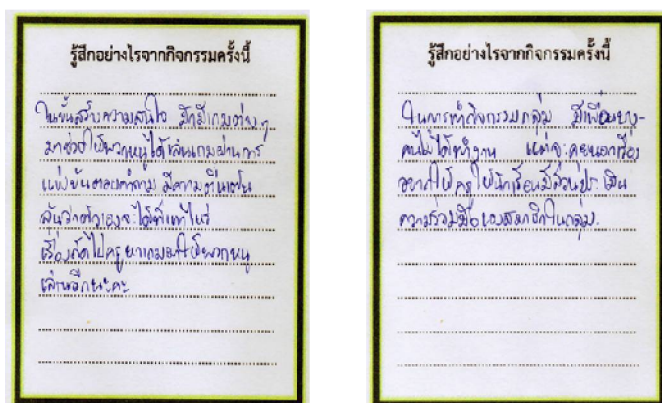 รู้สึกอย่างไรจากกิจกรรมครั้งนี้
ในขั้นสร้างความสนใจ มักมีเกมต่าง ๆ
มาช่วยให้พวกหนูได้เล่นเกมผ่านการ
แข่งขันตอบคำถาม มีความตื่นเต้น
ลุ้นว่าตัวเองจะได้ที่เท่าไหร่
เรื่องต่อไปครูหาเกมมาให้พวกหนู
เล่นอีกนะคะ
รู้สึกอย่างไรจากกิจกรรมครั้งนี้
ในการทำกิจกรรมกลุ่ม มีเพื่อนบาง-
คนไม่ได้ทำงาน แต่จะคอยนอกเรื่อง
อยากให้ครูให้นักเรียนมีส่วนประเมิน
ความร่วมมือของสมาชิกในกลุ่ม